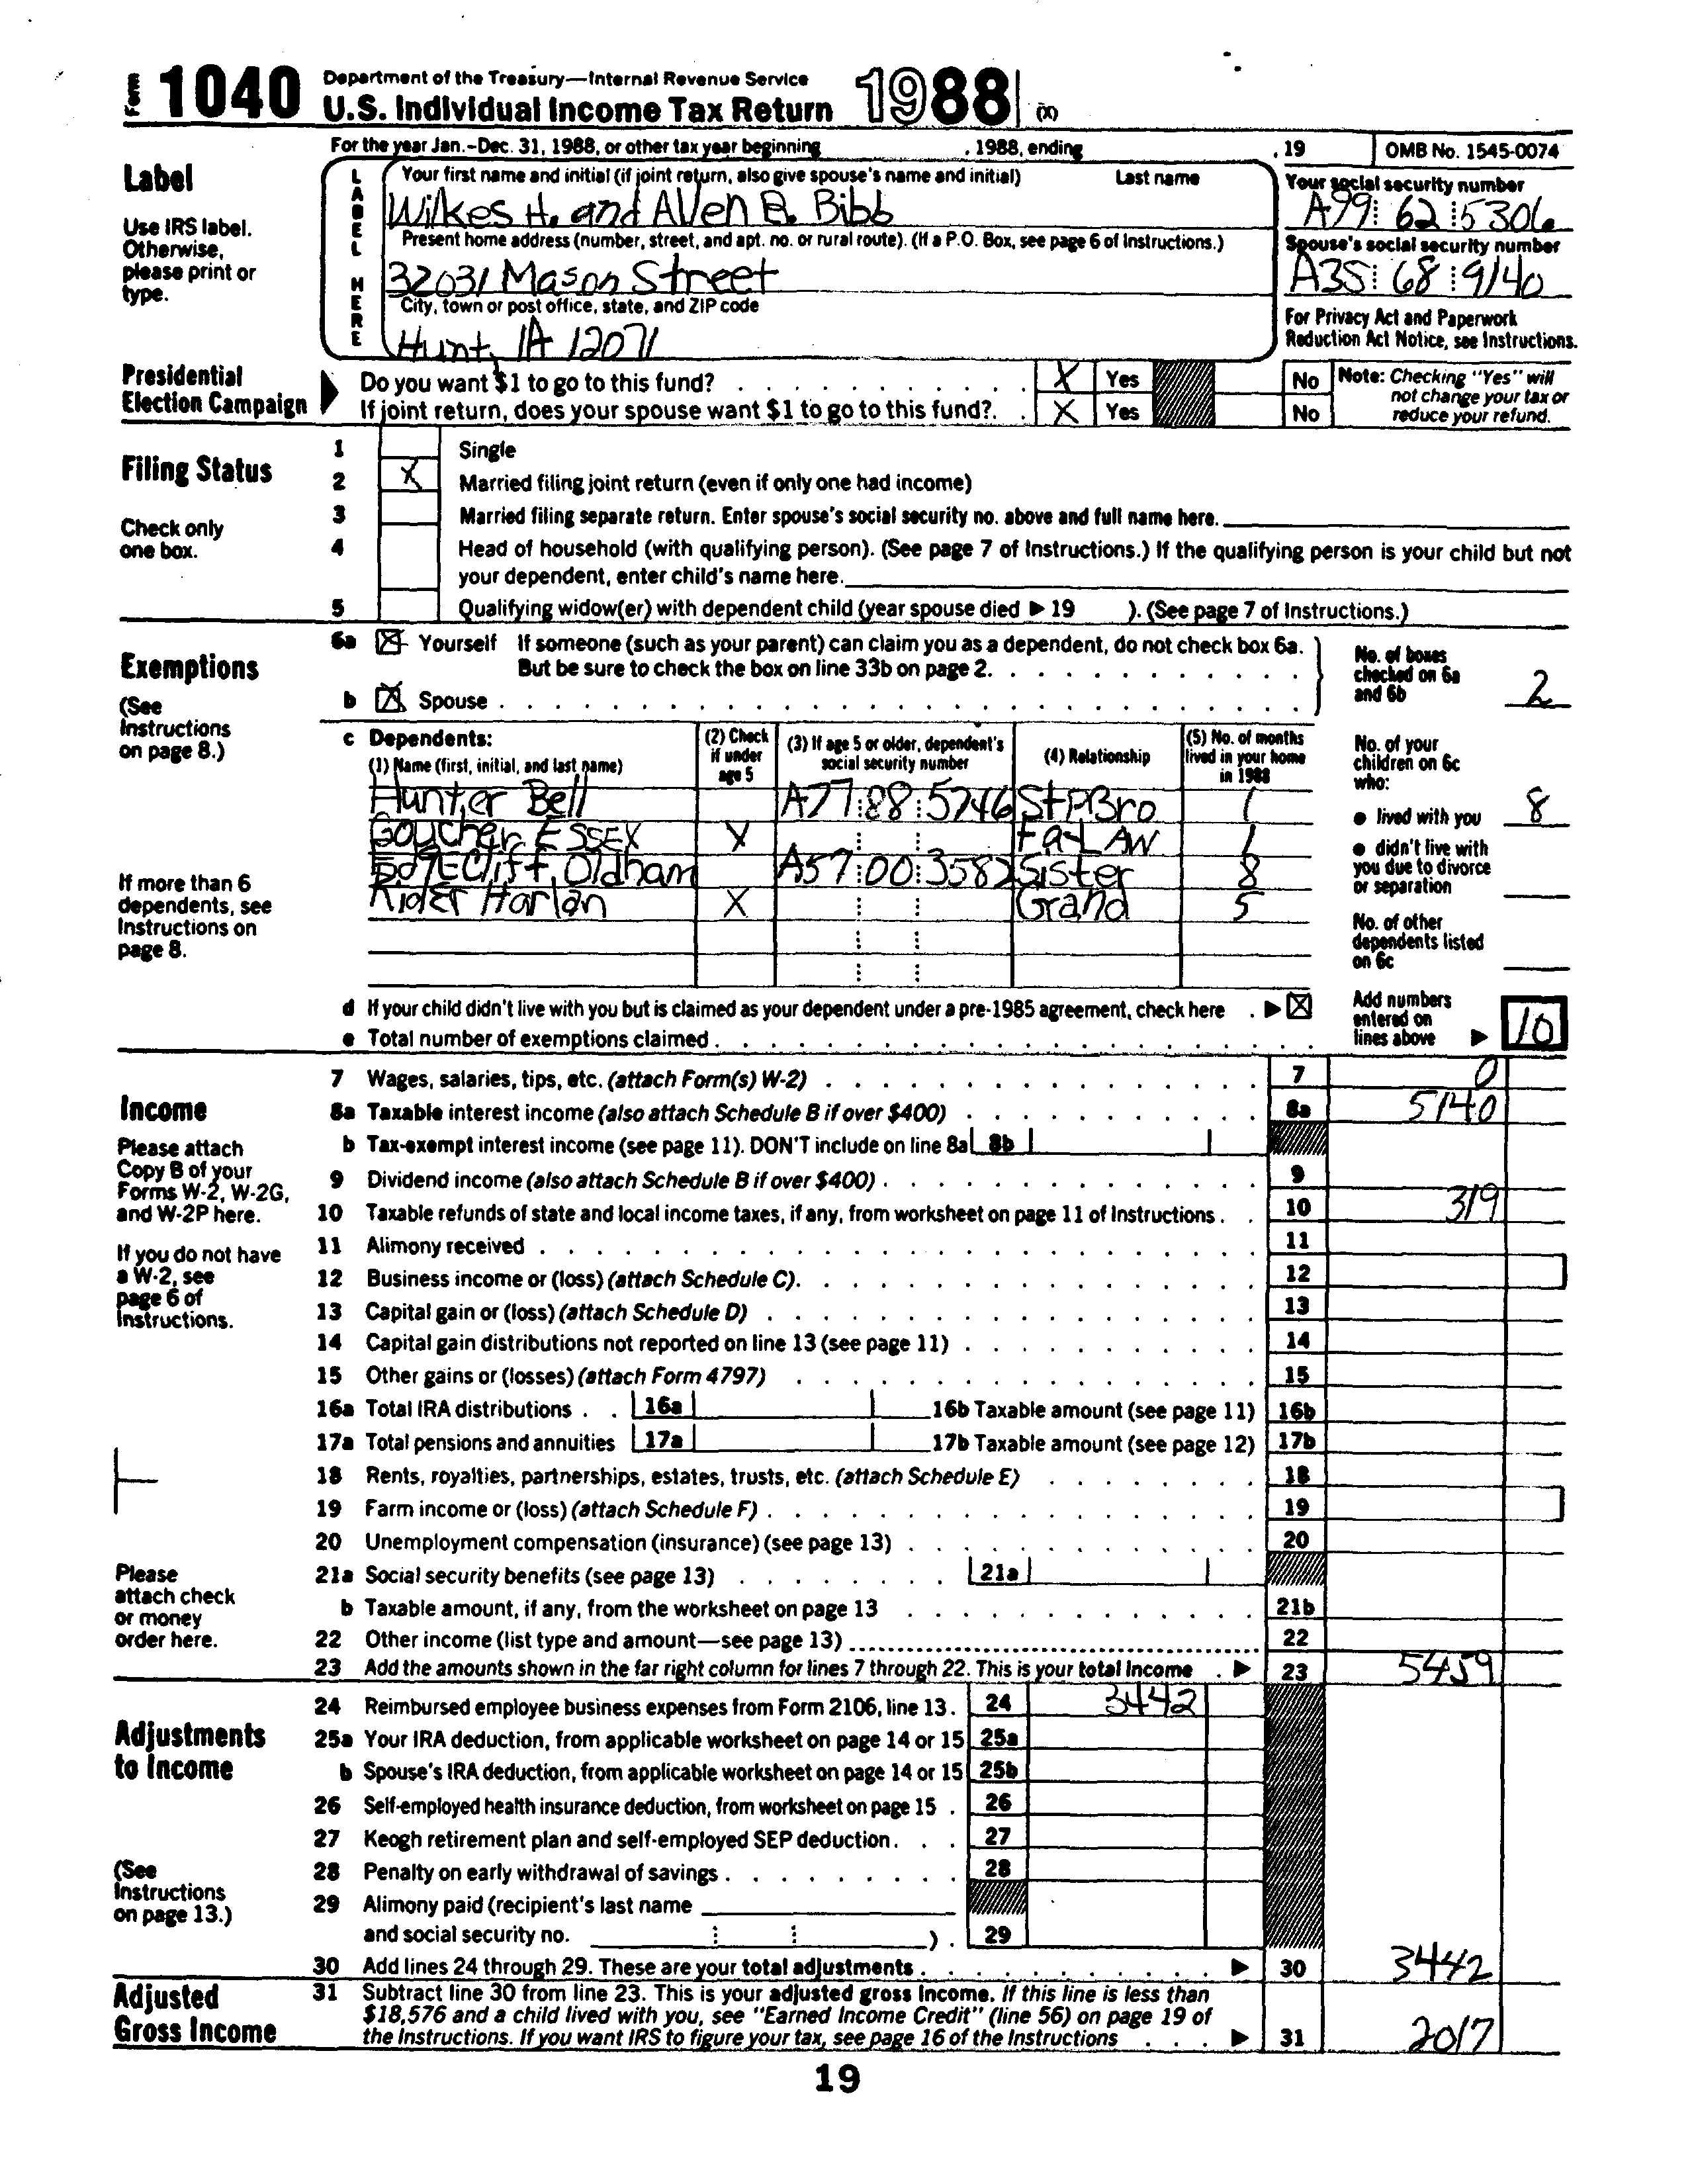 Form 1040 Department of the Treasury—Internal Revenue Service
U.S. Individual Income Tax Return 1988 (X)
For the year Jan.-Dec. 31, 1988, or other tax year beginning , 1988, ending , 19 OMB No. 1545-0074
Label
Use IRS label. Otherwise, please print or type.
LABEL HERE
Your first name and initial (if joint return, also give spouse's name and initial) Last name
Wilkes H. and Allen B. Bibb
Your social security number
A99 62 5306
Present home address (number, street, and apt. no. or rural route). (If a P.O. Box, see page 6 of Instructions.)
32031 Mason Street
Spouse's social security number
A35 68 9140
City, town or post office, state, and ZIP code
Hunt, IA 12071
For Privacy Act and Paperwork Reduction Act Notice, see Instructions.
Presidential Election Campaign
Do you want $1 to go to this fund? X Yes No
If joint return, does your spouse want $1 to go to this fund? X Yes No
Note: Checking "Yes" will not change your tax or reduce your refund.
Filing Status
Check only one box.
1 Single
2 X Married filing joint return (even if only one had income)
3 Married filing separate return. Enter spouse's social security no. above and full name here.
4 Head of household (with qualifying person). (See page 7 of Instructions.) If the qualifying person is your child but not
your dependent, enter child's name here.
5 Qualifying widow(er) with dependent child (year spouse died ▶ 19 ). (See page 7 of Instructions.)
Exemptions
(See Instructions on page 8.)
If more than 6 dependents, see Instructions on page 8.
6a X Yourself If someone (such as your parent) can claim you as a dependent, do not check box 6a.
But be sure to check the box on line 33b on page 2.
b X Spouse
No. of boxes checked on 6a and 6b 2
c Dependents:
(1) Name (first, initial, and last name) (2) Check if under age 5 (3) If age 5 or older, dependent's social security number (4) Relationship (5) No. of months lived in your home in 1988
Hunter Bell A77 88 5746 StPBro 1
Goucher Essex X Fa-LAW 1
EdgECliff Oldham A57 00 3582 Sister 8
Rider Harlan X Grand 5
No. of your children on 6c who:
● lived with you 8
● didn't live with you due to divorce or separation
No. of other dependents listed on 6c
d If your child didn't live with you but is claimed as your dependent under a pre-1985 agreement, check here ▶ X
e Total number of exemptions claimed
Add numbers entered on lines above ▶ 10
Income
Please attach Copy B of your Forms W-2, W-2G, and W-2P here.
If you do not have a W-2, see page 6 of Instructions.
Please attach check or money order here.
7 Wages, salaries, tips, etc. (attach Form(s) W-2) 7 0
8a Taxable interest income (also attach Schedule B if over $400) 8a 5140
b Tax-exempt interest income (see page 11). DON'T include on line 8a 8b
9 Dividend income (also attach Schedule B if over $400) 9
10 Taxable refunds of state and local income taxes, if any, from worksheet on page 11 of Instructions 10 319
11 Alimony received 11
12 Business income or (loss) (attach Schedule C) 12
13 Capital gain or (loss) (attach Schedule D) 13
14 Capital gain distributions not reported on line 13 (see page 11) 14
15 Other gains or (losses) (attach Form 4797) 15
16a Total IRA distributions 16a 16b Taxable amount (see page 11) 16b
17a Total pensions and annuities 17a 17b Taxable amount (see page 12) 17b
18 Rents, royalties, partnerships, estates, trusts, etc. (attach Schedule E) 18
19 Farm income or (loss) (attach Schedule F) 19
20 Unemployment compensation (insurance) (see page 13) 20
21a Social security benefits (see page 13) 21a
b Taxable amount, if any, from the worksheet on page 13 21b
22 Other income (list type and amount—see page 13) 22
23 Add the amounts shown in the far right column for lines 7 through 22. This is your total income ▶ 23 5459
Adjustments to Income
(See Instructions on page 13.)
24 Reimbursed employee business expenses from Form 2106, line 13. 24 3442
25a Your IRA deduction, from applicable worksheet on page 14 or 15 25a
b Spouse's IRA deduction, from applicable worksheet on page 14 or 15 25b
26 Self-employed health insurance deduction, from worksheet on page 15 26
27 Keogh retirement plan and self-employed SEP deduction 27
28 Penalty on early withdrawal of savings 28
29 Alimony paid (recipient's last name
and social security no. ) 29
30 Add lines 24 through 29. These are your total adjustments ▶ 30 3442
Adjusted Gross Income
31 Subtract line 30 from line 23. This is your adjusted gross income. If this line is less than
$18,576 and a child lived with you, see "Earned Income Credit" (line 56) on page 19 of
the Instructions. If you want IRS to figure your tax, see page 16 of the Instructions ▶ 31 2017
19